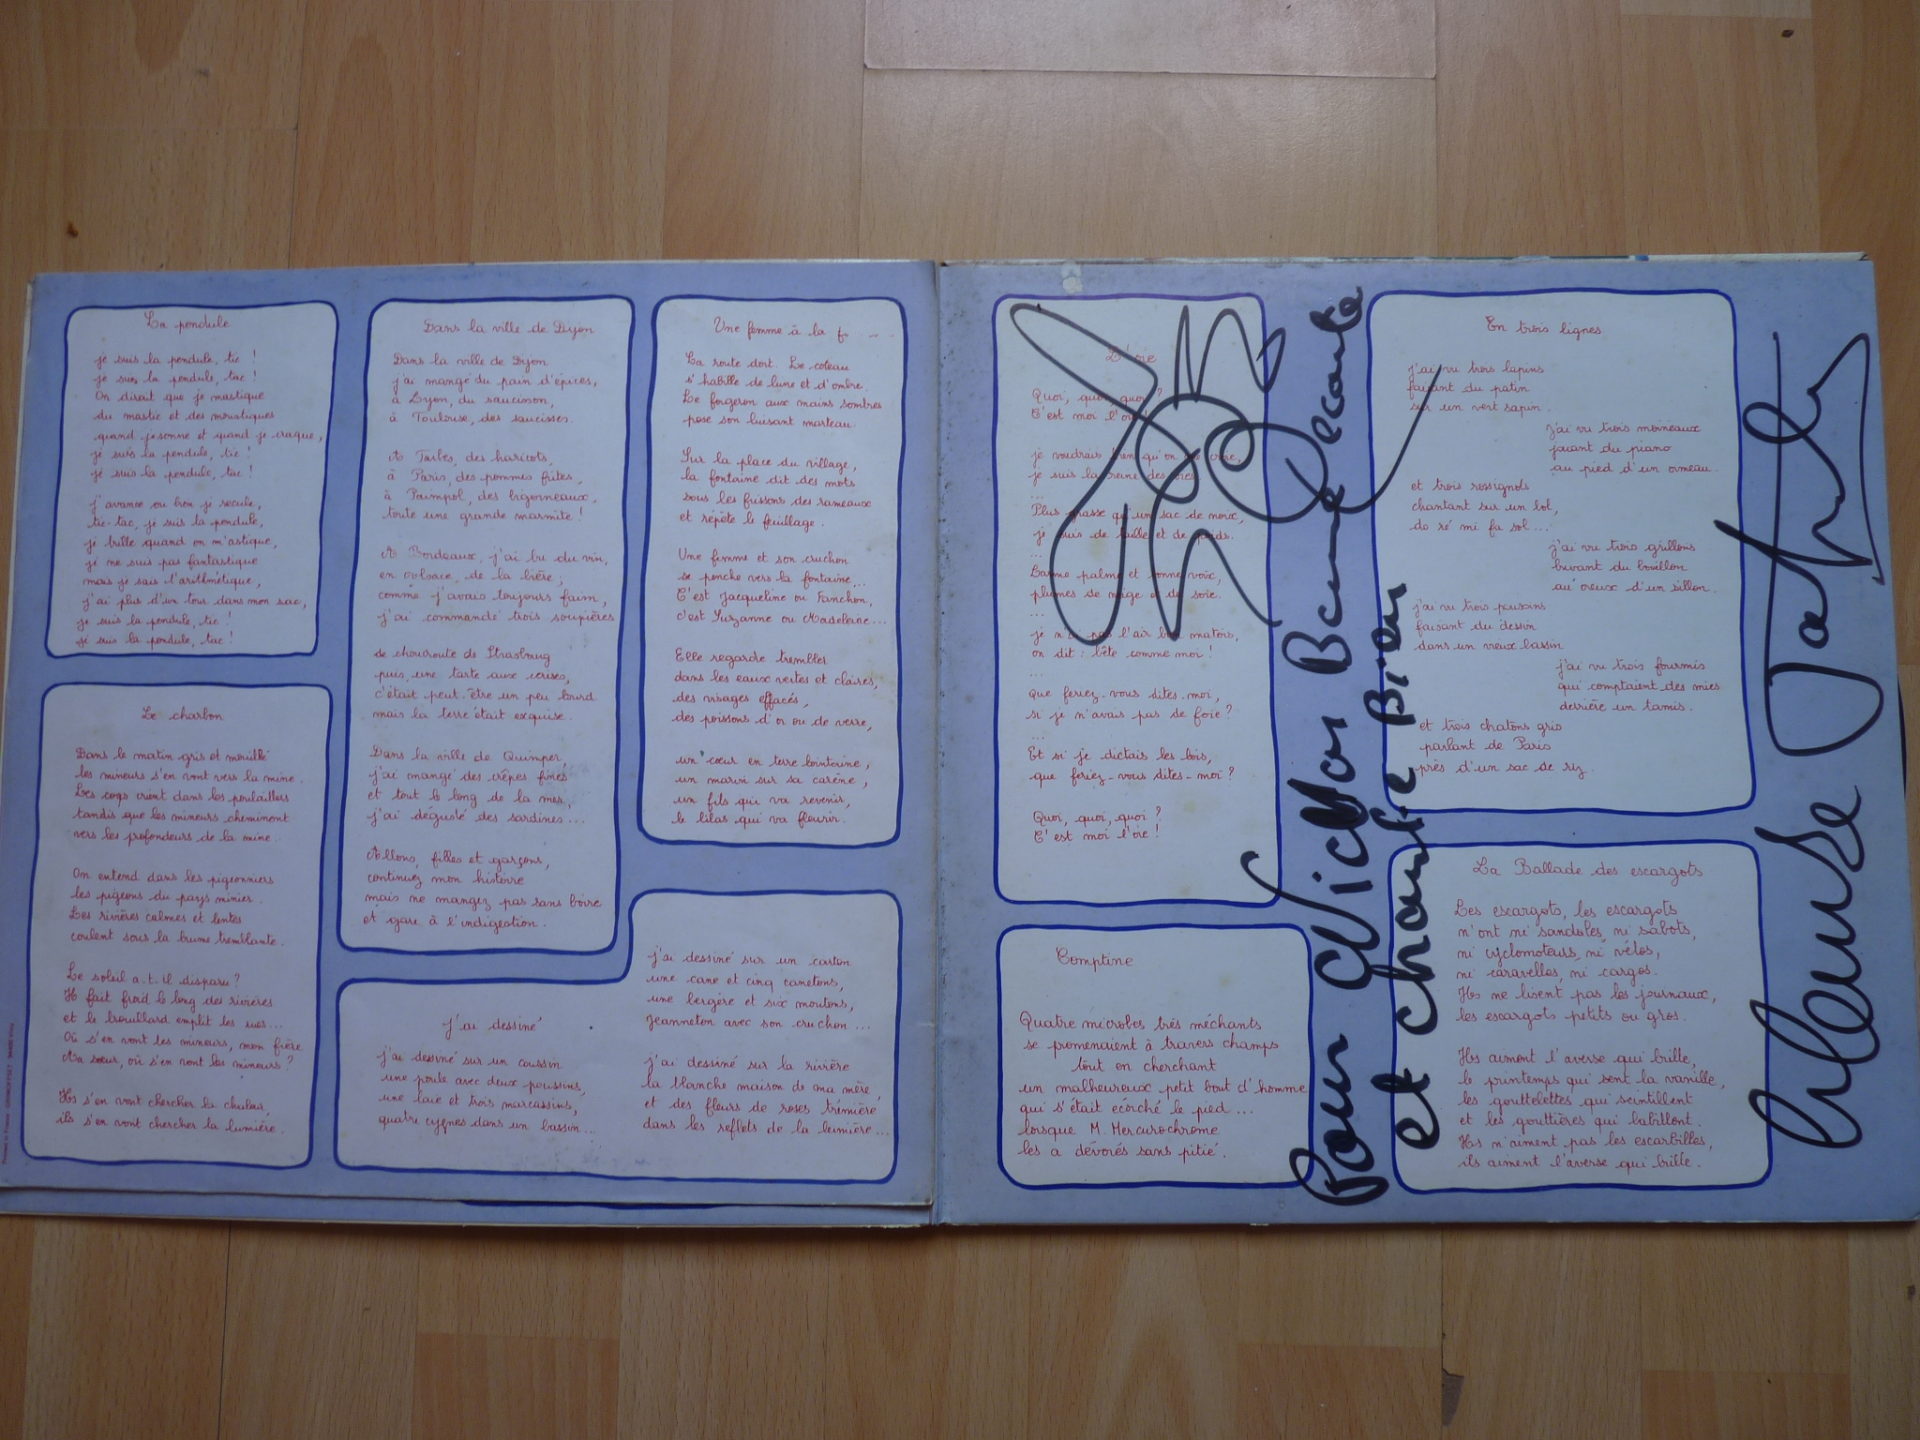 La pendule
je suis la pendule, tic !
je suis la pendule, tac !
On dirait que je mastique
du mastic et des moustiques
quand je sonne et quand je craque,
je suis la pendule, tic !
je suis la pendule, tac !
j'avance ou bien je recule,
tic-tac, je suis la pendule,
je brille quand on m'astique,
je ne suis pas fantastique
mais je sais l'arithmétique,
j'ai plus d'un tour dans mon sac,
je suis la pendule, tic !
je suis la pendule, tac !
Le charbon
Dans le matin gris et mouillé
les mineurs s'en vont vers la mine.
Les coqs crient dans les poulaillers
tandis que les mineurs cheminent
vers les profondeurs de la mine..
On entend dans les pigeonniers
les pigeons du pays minier.
Les rivières calmes et lentes
coulent sous la brume tremblante.
Le soleil a.t.il disparu ?
Il fait froid le long des rivières
et le brouillard emplit les rues...
Où s'en vont les mineurs, mon frère
Ma sœur, où s'en vont les mineurs ?
Ils s'en vont chercher la chaleur,
ils s'en vont chercher la lumière.
Dans la ville de Dijon
Dans la ville de Dijon
j'ai mangé du pain d'épices,
à Lyon, du saucisson,
à Toulouse, des saucisses.
A Tarbes, des haricots,
à Paris, des pommes frites,
à Paimpol, des bigorneaux,
toute une grande marmite !
A Bordeaux, j'ai bu du vin,
en Alsace, de la bière ;
comme j'avais toujours faim,
j'ai commandé trois soupières
de choucroute de Strasbourg
puis une tarte aux cerises,
c'était peut-être un peu lourd
mais la terre était exquise.
Dans la ville de Quimper,
j'ai mangé des crêpes fines
et tout le long de la mer,
j'ai dégusté des sardines...
Allons, filles et garçons,
continuez mon histoire
mais ne mangez pas sans boire
et gare à l'indigestion.
Une femme à la f...
La route dort. Le coteau
s'habille de lune et d'ombre.
Le forgeron aux mains sombres
pose son luisant marteau.
Sur la place du village,
la fontaine dit des mots
sous les frissons des rameaux
et répète le feuillage.
Une femme et son cruchon
se penche vers la fontaine...
C'est Jacqueline ou Fanchon,
c'est Suzanne ou Madeleine...
Elle regarde trembler
dans les eaux vertes et claires,
des visages effacés,
des poissons d'or ou de verre,
un cœur en terre lointaine,
un marin sur sa carène,
un fils qui va revenir,
le lilas qui va fleurir.
J'ai dessiné
j'ai dessiné sur un coussin
une poule avec deux poussins,
une laie et trois marcassins,
quatre cygnes dans un bassin...
j'ai dessiné sur un carton
une cane et cinq canetons,
une bergère et six moutons,
Jeanneton avec son cruchon...
j'ai dessiné sur la rivière
la blanche maison de ma mère,
et des fleurs de roses trémière
dans les reflets de la lumière...
L'oie
Quoi, quoi, quoi ?
C'est moi l'oie !
je voudrais bien qu'on me croie,
je suis la reine des oies.
...
Plus grasse qu'un sac de noix,
je suis de taille et de poids.
...
Bonne palme et bonne voix,
plumes de neige et de soie.
...
je n'ai pas l'air bien matois,
on dit : bête comme moi !
...
Que feriez-vous dites-moi,
si je n'avais pas de foie ?
...
Et si je dictais les lois,
que feriez-vous dites-moi ?
Quoi, quoi, quoi ?
C'est moi l'oie !
Comptine
Quatre microbes très méchants
se promenaient à travers champs
tout en cherchant
un malheureux petit bout d'homme
qui s'était écorché le pied...
lorsque M. Mercurochrome
les a dévorés sans pitié.
En trois lignes
j'ai vu trois lapins
faisant du patin
sur un vert sapin.
j'ai vu trois moineaux
jouant du piano
au pied d'un ormeau.
et trois rossignols
chantant sur un bol,
do ré mi fa sol...
j'ai vu trois grillons
buvant du bouillon
au creux d'un sillon.
j'ai vu trois poussins
faisant du dessin
dans un vieux bassin
j'ai vu trois fourmis
qui comptaient des mies
derrière un tamis.
et trois chatons gris
parlant de Paris
près d'un sac de riz.
La Ballade des escargots
Les escargots, les escargots
n'ont ni sandales, ni sabots,
ni cyclomoteurs, ni vélos,
ni caravelles, ni cargos.
Ils ne lisent pas les journaux,
les escargots petits ou gros.
Ils aiment l'averse qui brille,
le printemps qui sent la vanille,
les gouttelettes qui scintillent
et les gouttières qui babillent.
Ils n'aiment pas les escarbilles,
ils aiment l'averse qui brille.
Pour Bonne Ecoute
et chante Bien